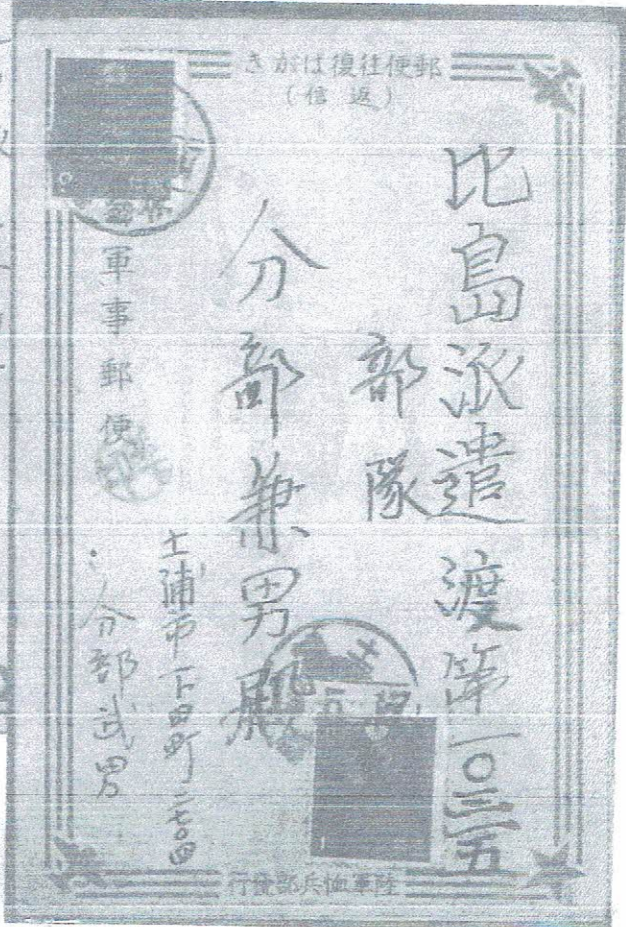 郵便往復はがき
(返信)
比島派遣渡第一〇三五
部隊
分部兼男殿
軍事郵便
土浦市下田町二七〇四
分部武男
陸軍恤兵部発行